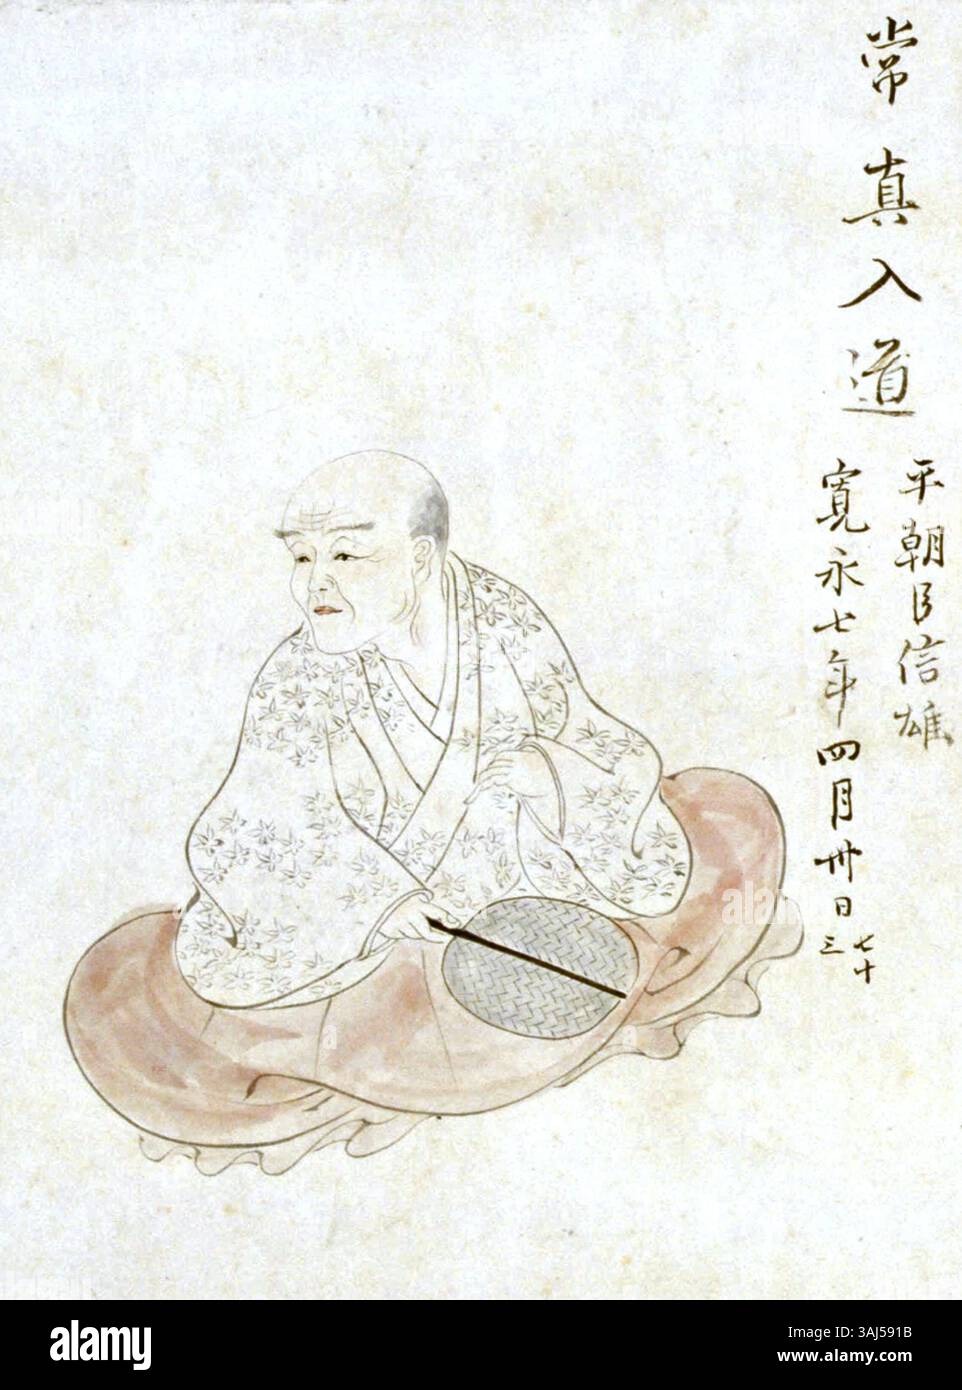 常真入道
平朝臣信雄
寛永七年四月卅日
七十三
alamy
alamy
a
a
a
a
Image ID: 3AJ591B
www.alamy.com